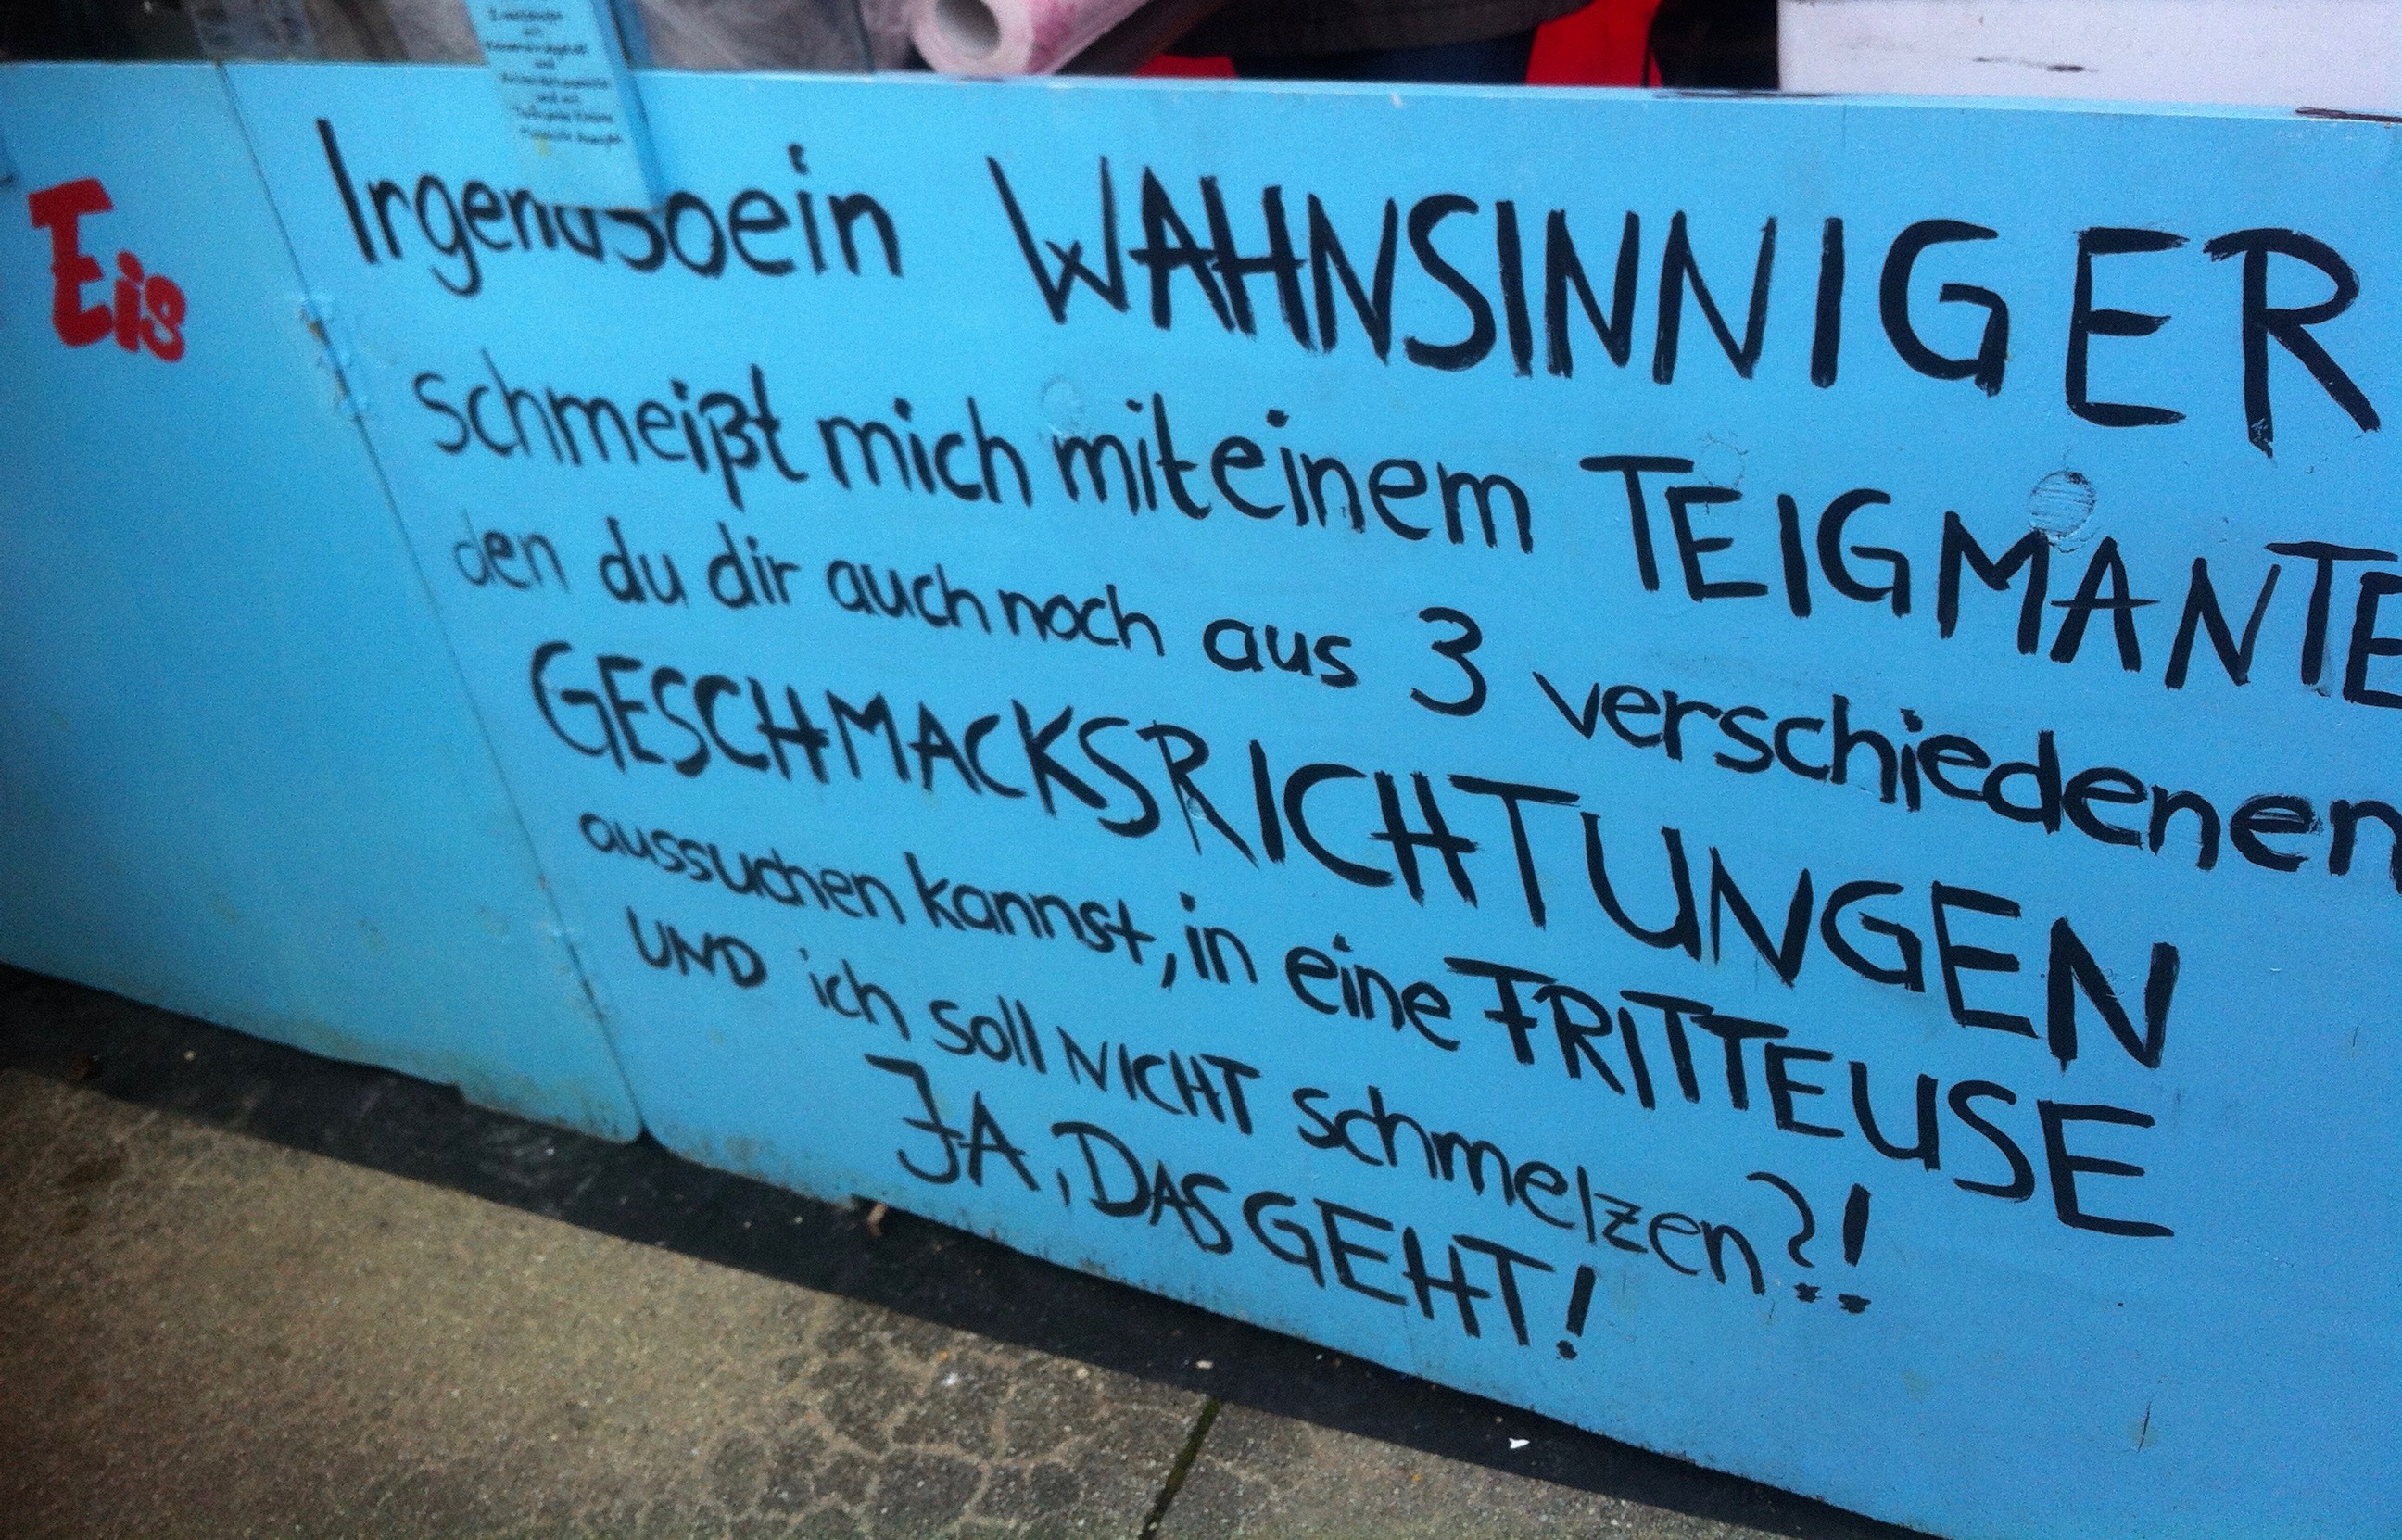 Eis
Irgendsoein WAHNSINNIGER
schmeißt mich mit einem TEIGMANTE
den du dir auch noch aus 3 verschiedenen
GESCHMACKSRICHTUNGEN
aussuchen kannst, in eine FRITTEUSE
UND ich soll NICHT schmelzen?!
JA, DAS GEHT!